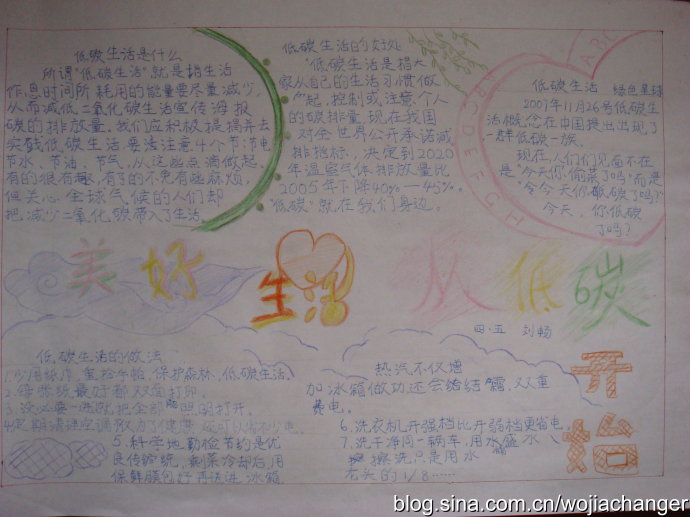 低碳生活是什么
所谓"低碳生活",就是指生活
作息时间所耗用的能量要尽量减少,
从而减低二氧化碳生活宣传海报
碳的排放量。我们应积极提倡并去
实践低碳生活,要注意4个节:节电
节水、节油、节气,从这些点滴做起,
有的很有趣,有的不免有些麻烦,
但关心全球气候的人们却
把减少二氧化碳带入了生活。
低碳生活的好处
"低碳生活是指大
家从自己的生活习惯做
起,控制或注意个人
的碳排量。现在我国
对全世界公开承诺减
排指标,决定到2020
年温室气体排放量比
2005年下降40%—45%。
"低碳"就在我们身边。
ABC
ABCDEFGH
低碳生活 绿色星球
2007年11月26号低碳生
活概念在中国提出出现了
一群低碳一族。
现在,人们们见面不在
是"今天你偷菜了吗"而是
"今天你低碳了吗?"
今天,你低碳
了吗?
美好生活从低碳开始
四·五 刘畅
低碳生活的做法
保护森林,低碳生活。
2.每张纸最好都双面打印。
3.没必要一进就把全部照明打开。
5.科学地勤俭节约是优
良传统,剩菜冷却后,用
保鲜膜包好再送进冰箱
热汽不仅增
加冰箱做功还会结霜,双重
费电。
6.洗衣机开强档比开弱档更省电。
7.洗干净同一辆车,用水盛水
擦洗只是用水
龙头的1/8……
blog.sina.com.cn/wojiachanger